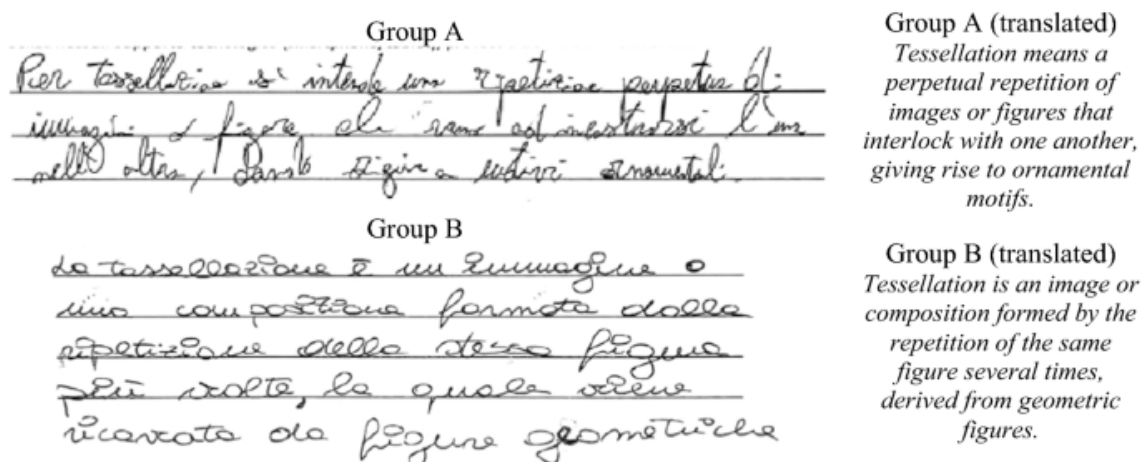 Group A
Per tassellazione si intende una ripetizione perpetua di
immagini o figure che vanno ad incastrarsi l'una
nell'altra, dando origine a motivi ornamentali.
Group B
La tassellazione è un immagine o
una composizione formata dalla
ripetizione della stessa figura
più volte, la quale viene
ricavata da figure geometriche
Group A (translated)
Tessellation means a
perpetual repetition of
images or figures that
interlock with one another,
giving rise to ornamental
motifs.
Group B (translated)
Tessellation is an image or
composition formed by the
repetition of the same
figure several times,
derived from geometric
figures.